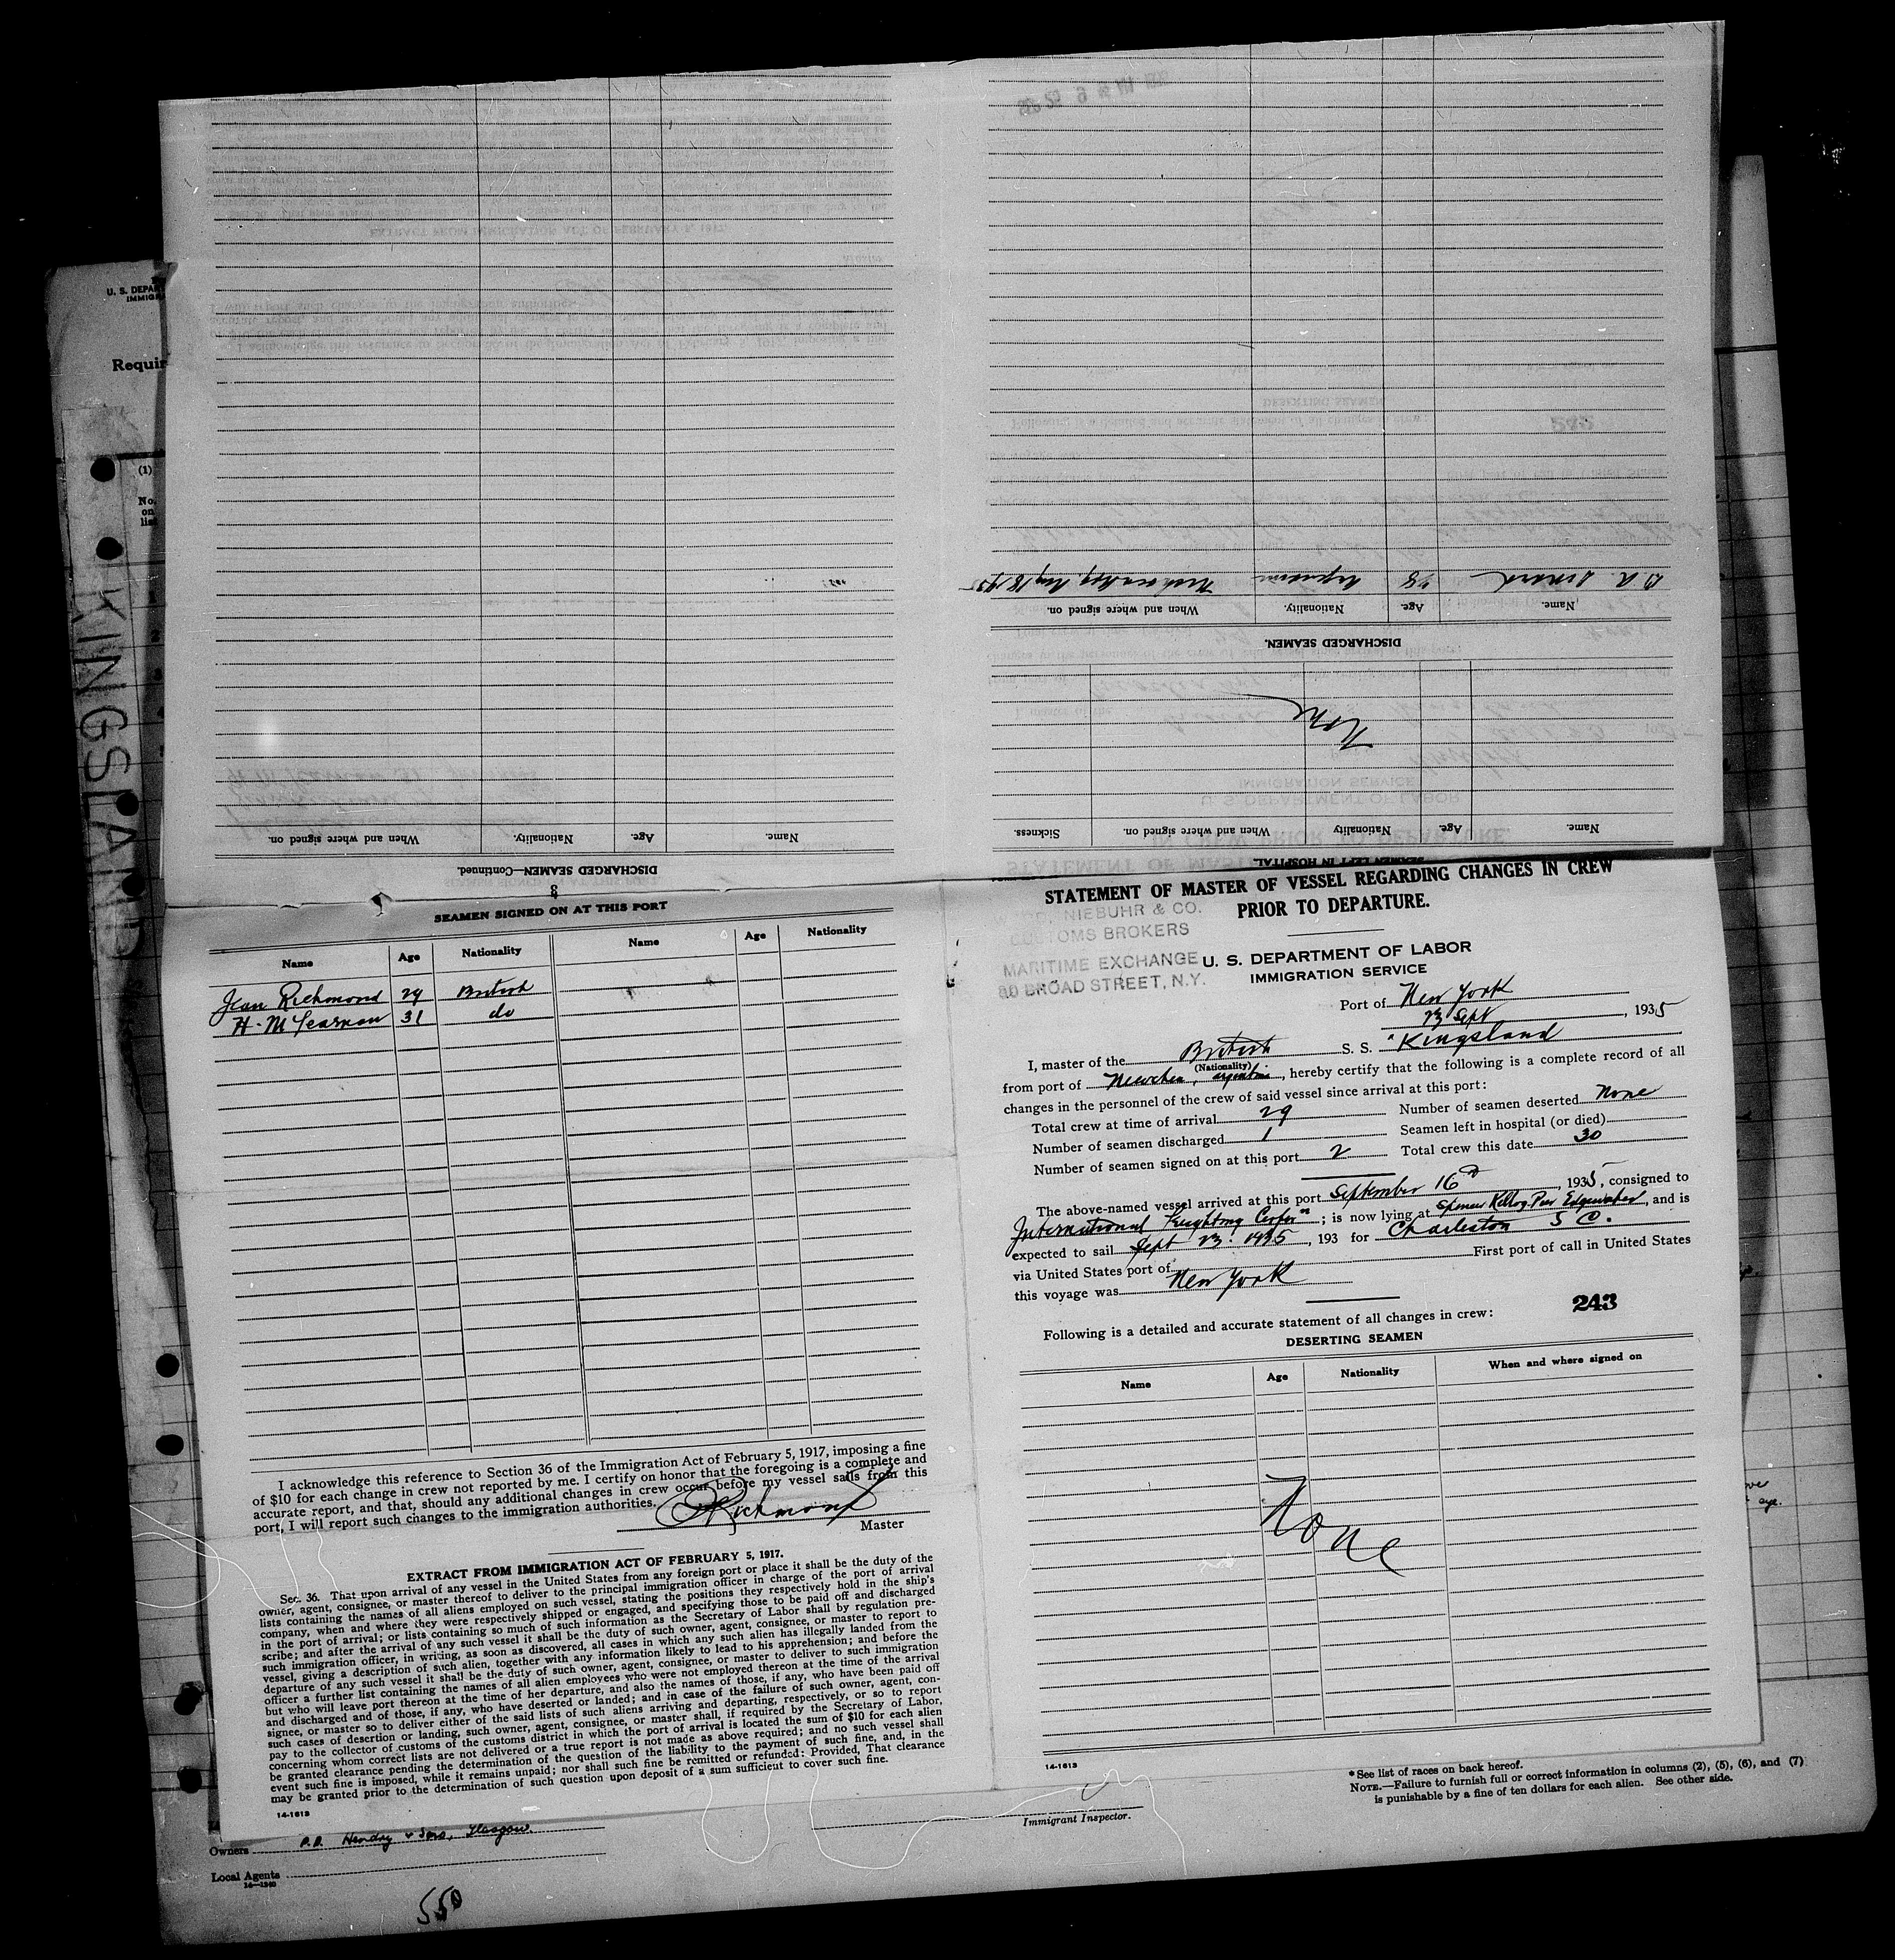 U. S. DEPAR
IMMIGR
Requir
(1)
No.
on
list
KINGSLAND
Name. Age. Nationality. When and where signed on.
DISCHARGED SEAMEN—Continued.
3
28
DISCHARGED SEAMEN.
Name. Age. Nationality. When and where signed on.
None
Name. Age. Nationality When and where signed on. Sickness.
SEAMEN LEFT IN HOSPITAL.
SEAMEN SIGNED ON AT THIS PORT
Name Age Nationality Name Age Nationality
Jean Richmond 29 British
31 do
I acknowledge this reference to Section 36 of the Immigration Act of February 5, 1917, imposing a fine
of $10 for each change in crew not reported by me. I certify on honor that the foregoing is a complete and
accurate report, and that, should any additional changes in crew occur before my vessel sails from this
port, I will report such changes to the immigration authorities.
Richmond
Master
EXTRACT FROM IMMIGRATION ACT OF FEBRUARY 5, 1917.
Sec. 36. That upon arrival of any vessel in the United States from any foreign port or place it shall be the duty of the
owner, agent, consignee, or master thereof to deliver to the principal immigration officer in charge of the port of arrival
lists containing the names of all aliens employed on such vessel, stating the positions they respectively hold in the ship's
company, when and where they were respectively shipped or engaged, and specifying those to be paid off and discharged
in the port of arrival; or lists containing so much of such information as the Secretary of Labor shall by regulation pre-
scribe; and after the arrival of any such vessel it shall be the duty of such owner, agent, consignee, or master to report to
such immigration officer, in writing, as soon as discovered, all cases in which any such alien has illegally landed from the
vessel, giving a description of such alien, together with any information likely to lead to his apprehension; and before the
departure of any such vessel it shall be the duty of such owner, agent, consignee, or master to deliver to such immigration
officer a further list containing the names of all alien employees who were not employed thereon at the time of the arrival
but who will leave port thereon at the time of her departure, and also the names of those, if any, who have been paid off
and discharged and of those, if any, who have deserted or landed; and in case of the failure of such owner, agent, con-
signee, or master so to deliver either of the said lists of such aliens arriving and departing, respectively, or so to report
such cases of desertion or landing, such owner, agent, consignee, or master shall, if required by the Secretary of Labor,
pay to the collector of customs of the customs district in which the port of arrival is located the sum of $10 for each alien
concerning whom correct lists are not delivered or a true report is not made as above required; and no such vessel shall
be granted clearance pending the determination of the question of the liability to the payment of such fine, and, in the
event such fine is imposed, while it remains unpaid; nor shall such fine be remitted or refunded: Provided, That clearance
may be granted prior to the determination of such question upon deposit of a sum sufficient to cover such fine.
14-1613
STATEMENT OF MASTER OF VESSEL REGARDING CHANGES IN CREW
PRIOR TO DEPARTURE.
NIEBUHR & CO.
CUSTOMS BROKERS
MARITIME EXCHANGE
80 BROAD STREET, N.Y.
U. S. DEPARTMENT OF LABOR
IMMIGRATION SERVICE
Port of New York
23 Sept, 1935
I, master of the British S. S. "Kingsland
(Nationality)
from port of , Argentine, hereby certify that the following is a complete record of all
changes in the personnel of the crew of said vessel since arrival at this port:
Total crew at time of arrival 29 Number of seamen deserted None
Number of seamen discharged 1 Seamen left in hospital (or died)
Number of seamen signed on at this port 2 Total crew this date 30
The above-named vessel arrived at this port September 16th, 1935, consigned to
International Freighting Corpn; is now lying at Spencer Kellog Pier Edgewater, and is
expected to sail Sept 23 1935, 193 for Charleston S C.
via United States port of First port of call in United States
this voyage was New York
243
Following is a detailed and accurate statement of all changes in crew:
DESERTING SEAMEN
Name Age Nationality When and where signed on
None
14-1613
* See list of races on back hereof.
NOTE.—Failure to furnish full or correct information in columns (2), (5), (6), and (7)
is punishable by a fine of ten dollars for each alien. See other side.
Immigrant Inspector.
Owners P.D. Hendry & Sons, Glasgow.
Local Agents
14-1240
550